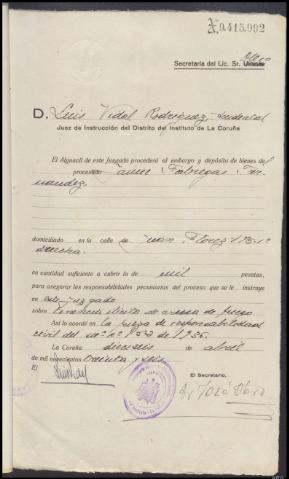 N.9.415.992
Secretaría del Lic. Sr.
D. Luis Vidal Rodríguez, accidental
Juez de Instrucción del Distrito del Instituto de La Coruña
El Alguacil de este Juzgado procederá al embargo y depósito de bienes del
procesado Jaime Fabregas Fer-
nandez,
domiciliado en la calle de Juan Florez 1
derecha.
en cantidad suficiente a cubrir la de mil pesetas,
para asegurar las responsabilidades pecuniarias del proceso que se le instruye
en este Juzgado
sobre tenencia ilícita de arma de fuego
Así lo acordé en la pieza de responsabilidad
civil del de 1936.
La Coruña dieciseis de abril
de mil novecientos treinta y seis.
El
El Secretario,